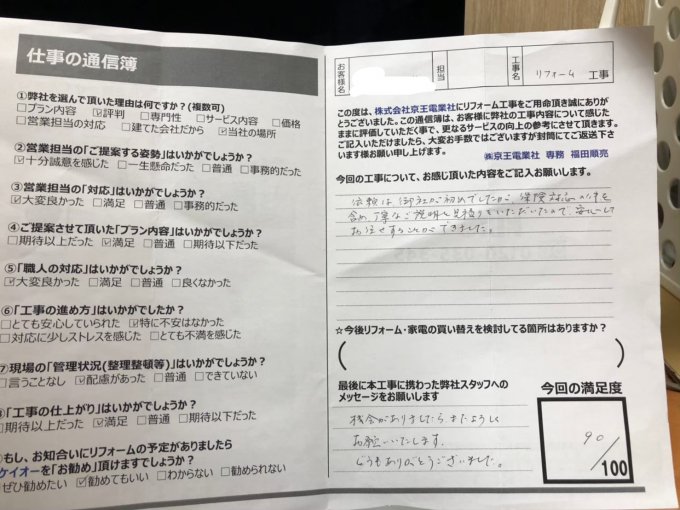 仕事の通信簿
①弊社を選んで頂いた理由は何ですか？(複数可)
□プラン内容 ☑評判 □専門性 □サービス内容 □価格
□営業担当の対応 □建てた会社だから ☑当社の場所
②営業担当の「ご提案する姿勢」はいかがでしょうか？
☑十分誠意を感じた □一生懸命だった □普通 □事務的だった
③営業担当の「対応」はいかがでしょうか？
☑大変良かった □満足 □普通 □事務的だった
④ご提案させて頂いた「プラン内容」はいかがでしょうか？
□期待以上だった ☑満足 □普通 □期待以下だった
⑤「職人の対応」はいかがでしょうか？
☑大変良かった □満足 □普通 □良くなかった
⑥「工事の進め方」はいかがでしたか？
□とても安心していられた ☑特に不安はなかった
□対応に少しストレスを感じた □とても不満を感じた
⑦現場の「管理状況(整理整頓等)」はいかがでしょうか？
□言うことなし ☑配慮があった □普通 □できていない
「工事の仕上がり」はいかがでしょうか？
□期待以上だった ☑満足 □普通 □期待以下だった
もし、お知合いにリフォームの予定がありましたら
ケイオーを「お勧め」頂けますでしょうか？
ぜひ勧めたい ☑勧めてもいい □わからない □勧められない
お客様名
担当
工事名
リフォーム 工事
この度は、株式会社京王電業社にリフォーム工事をご用命頂き誠にありが
とうございました。この通信簿は、お客様に弊社の工事内容について感じた
ままに評価していただく事で、更なるサービスの向上の参考にさせて頂きます。
ご記入いただけましたら、大変お手数ではございますが封筒にてご返送下さ
います様お願い申し上げます。
㈱京王電業社 専務 福田順亮
今回の工事について、お感じ頂いた内容をご記入お願いします。
依頼は御社が初めてでしたが、保険対応の件を
含め、丁寧なご説明と見積りをいただいたので、安心して
お任せすることができました。
☆今後リフォーム・家電の買い替えを検討してる箇所はありますか？
最後に本工事に携わった弊社スタッフへの
メッセージをお願いします
機会がありましたら、またよろしく
お願いいたします。
どうもありがとうございました。
今回の満足度
90
/100